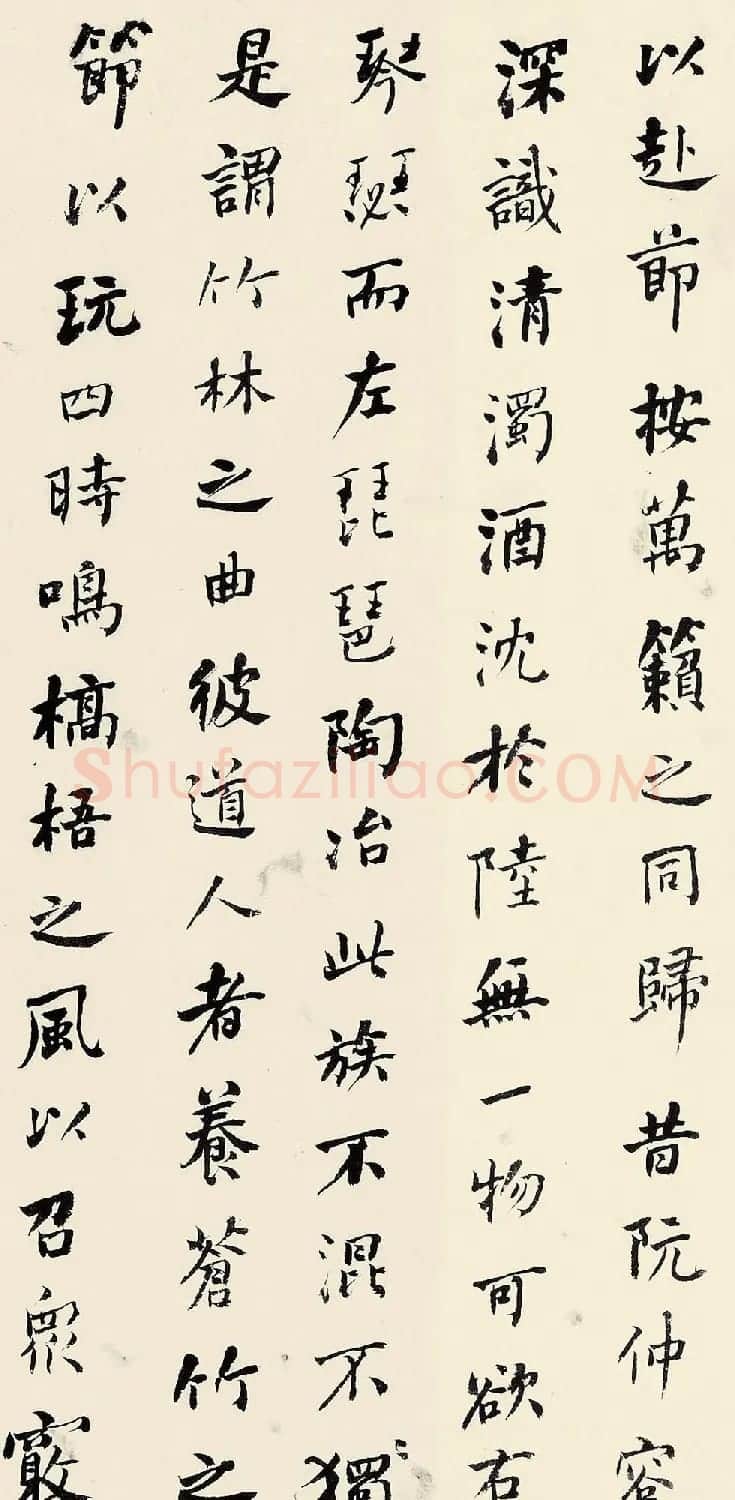 以赴節按萬籟之同歸昔阮仲容
深識清濁酒沈於陸無一物可欲右
琴瑟而左琵琶陶冶此族不混不獨
是謂竹林之曲彼道人者養蒼竹之
節以玩四時鳴槁梧之風以召衆竅
Shufaziliao.COM